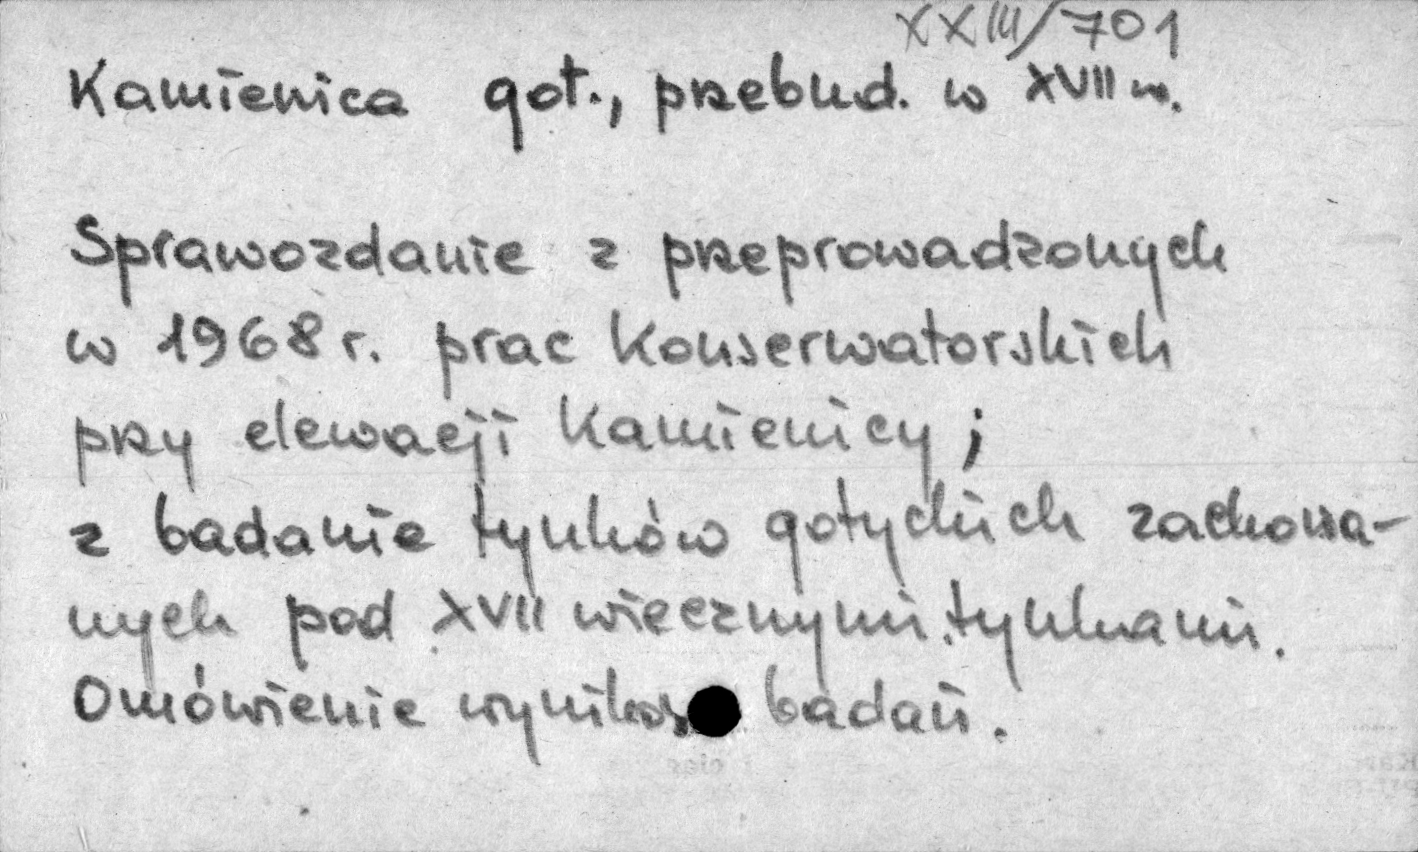 XXIII/701
Kamienica got., przebud. w XVII w.
Sprawozdanie z przeprowadzonych
w 1968 r. prac konserwatorskich
przy elewacji kamienicy;
z badanie tynków gotyckich zachowa-
nych pod XVII wiecznymi tynkami.
Omówienie wyników badań.